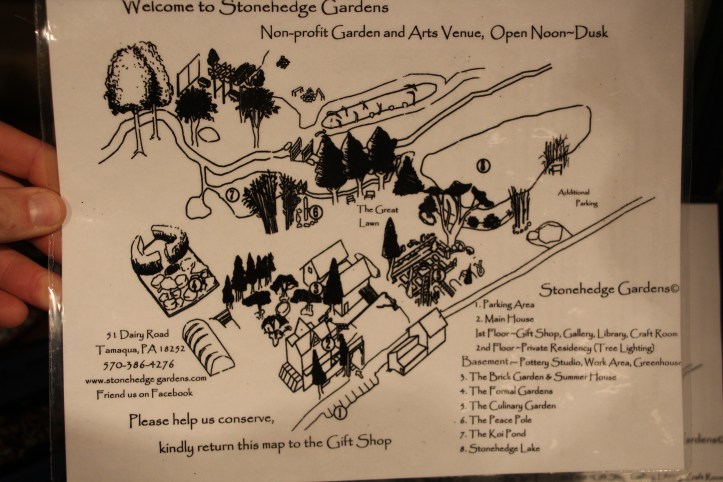 Welcome to Stonehedge Gardens
Non-profit Garden and Arts Venue, Open Noon~Dusk
8
7
6
Additional
Parking
The Great
Lawn
3
2
1
Stonehedge Gardens©
1. Parking Area
2. Main House
1st Floor~Gift Shop, Gallery, Library, Craft Room
2nd Floor~Private Residency (Tree Lighting)
Basement— Pottery Studio, Work Area, Greenhouse
3. The Brick Garden & Summer House
4. The Formal Gardens
5. The Culinary Garden
6. The Peace Pole
7. The Koi Pond
8. Stonehedge Lake
51 Dairy Road
Tamaqua, PA 18252
570-386-4276
www.stonehedge gardens.com
Friend us on Facebook
Please help us conserve,
kindly return this map to the Gift Shop